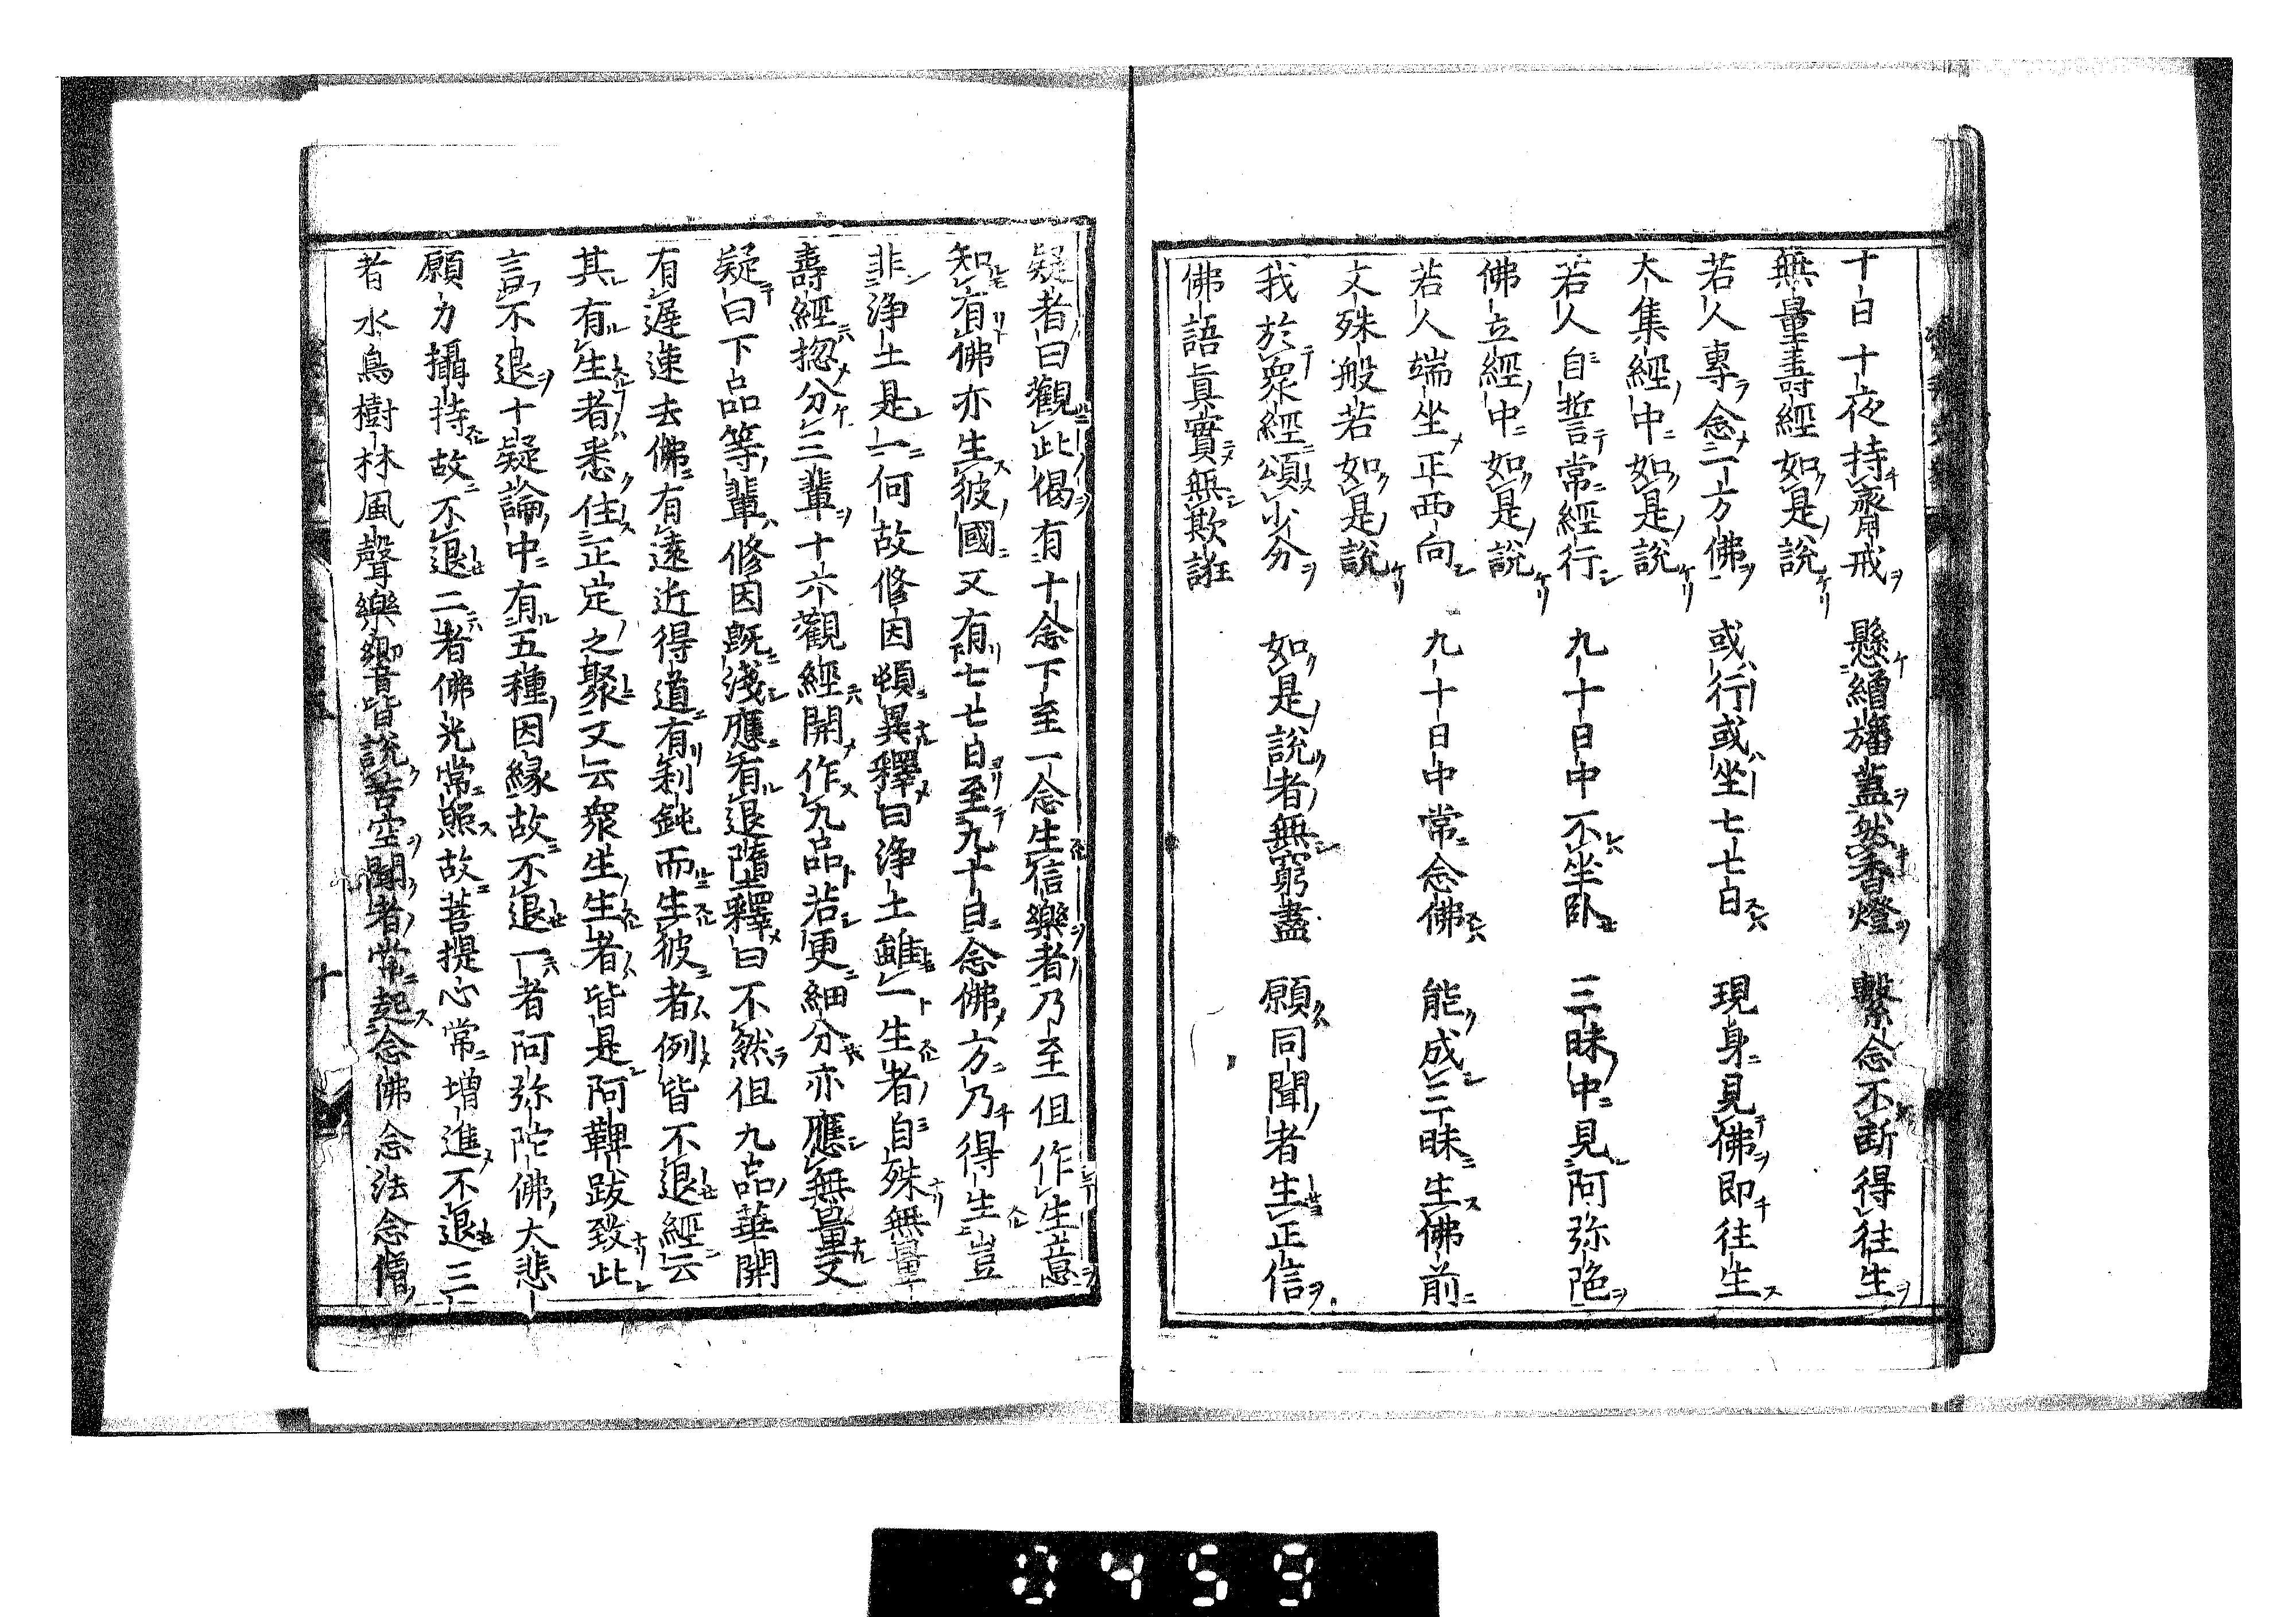 十日十夜持齋戒　懸繒旛蓋然香燈　繫念不断得往生
無量壽經如是說
若人專念一方佛　或行或坐七七日　現身見佛即往生
大集經中如是說
若人自誓常經行　九十日中不坐臥　三昧中見阿弥陁
佛立經中如是說
若人端坐正西向　九十日中常念佛　能成三昧生佛前
文殊般若如是說
我於衆經頌少分　如是說者無窮盡　願同聞者生正信
佛語眞實無欺誑
疑者曰觀此偈有十念下至一念生信樂者乃至但作生意
知有佛亦生彼國又有七七日至九十日念佛方乃得生豈
非淨土是一何故修因頓異釋曰淨土雖一生者自殊無量
壽經揔分三輩十六觀經開作九品若更細分亦應無量文
疑曰下品等輩修因既淺應有退墮釋曰不然但九品華開
有遲速去佛有遠近得道有利鈍而生彼者例皆不退經云
其有生者悉住正定之聚又云衆生生者皆是阿鞞跋致此
言不退十疑論中有五種因縁故不退一者阿弥陀佛大悲
願力攝持故不退二者佛光常照故菩提心常增進不退三
者水鳥樹林風聲樂響皆說苦空聞者常起念佛念法念僧
十
0459